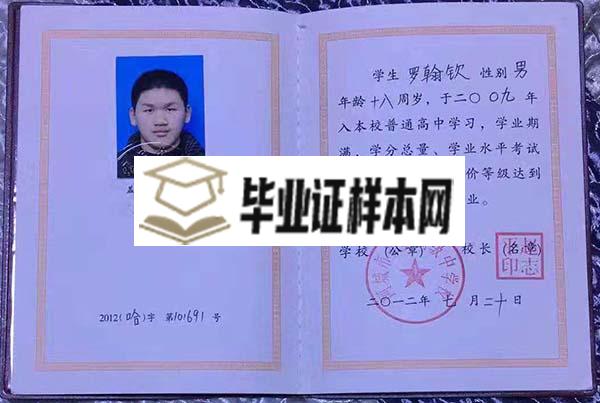 学生 罗翰钦 性别 男
年龄 十八 周岁，于二〇〇九 年
入本校普通高中学习，学业期
满，学分总量、学业水平考试
价等级达到
业。
毕业证样本网
学校 (公章) 校长 (名章)
二〇一二年 七 月 二十 日
2012(哈)字 第101691 号